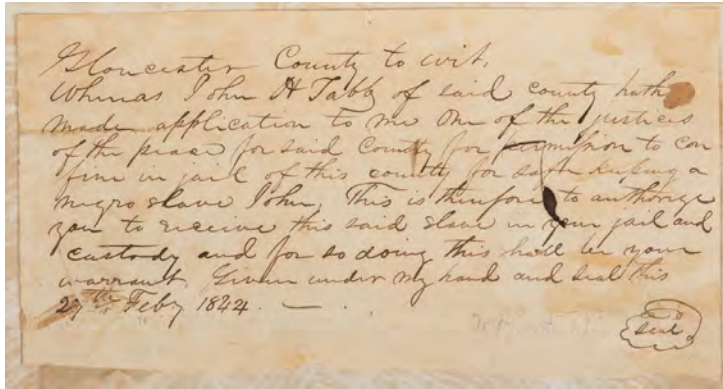 Gloucester County to wit,
Whereas John H Tabb of said county hath
made application to me One of the justices
of the peace for said County for permission to con
fine in jail of this county for safe keeping a
negro slave John, This is therefore to authorize
you to receive this said slave in your jail and
custody and for so doing this shall be your
warrant. Given under my hand and seal this
27th Feby 1844. —
seal